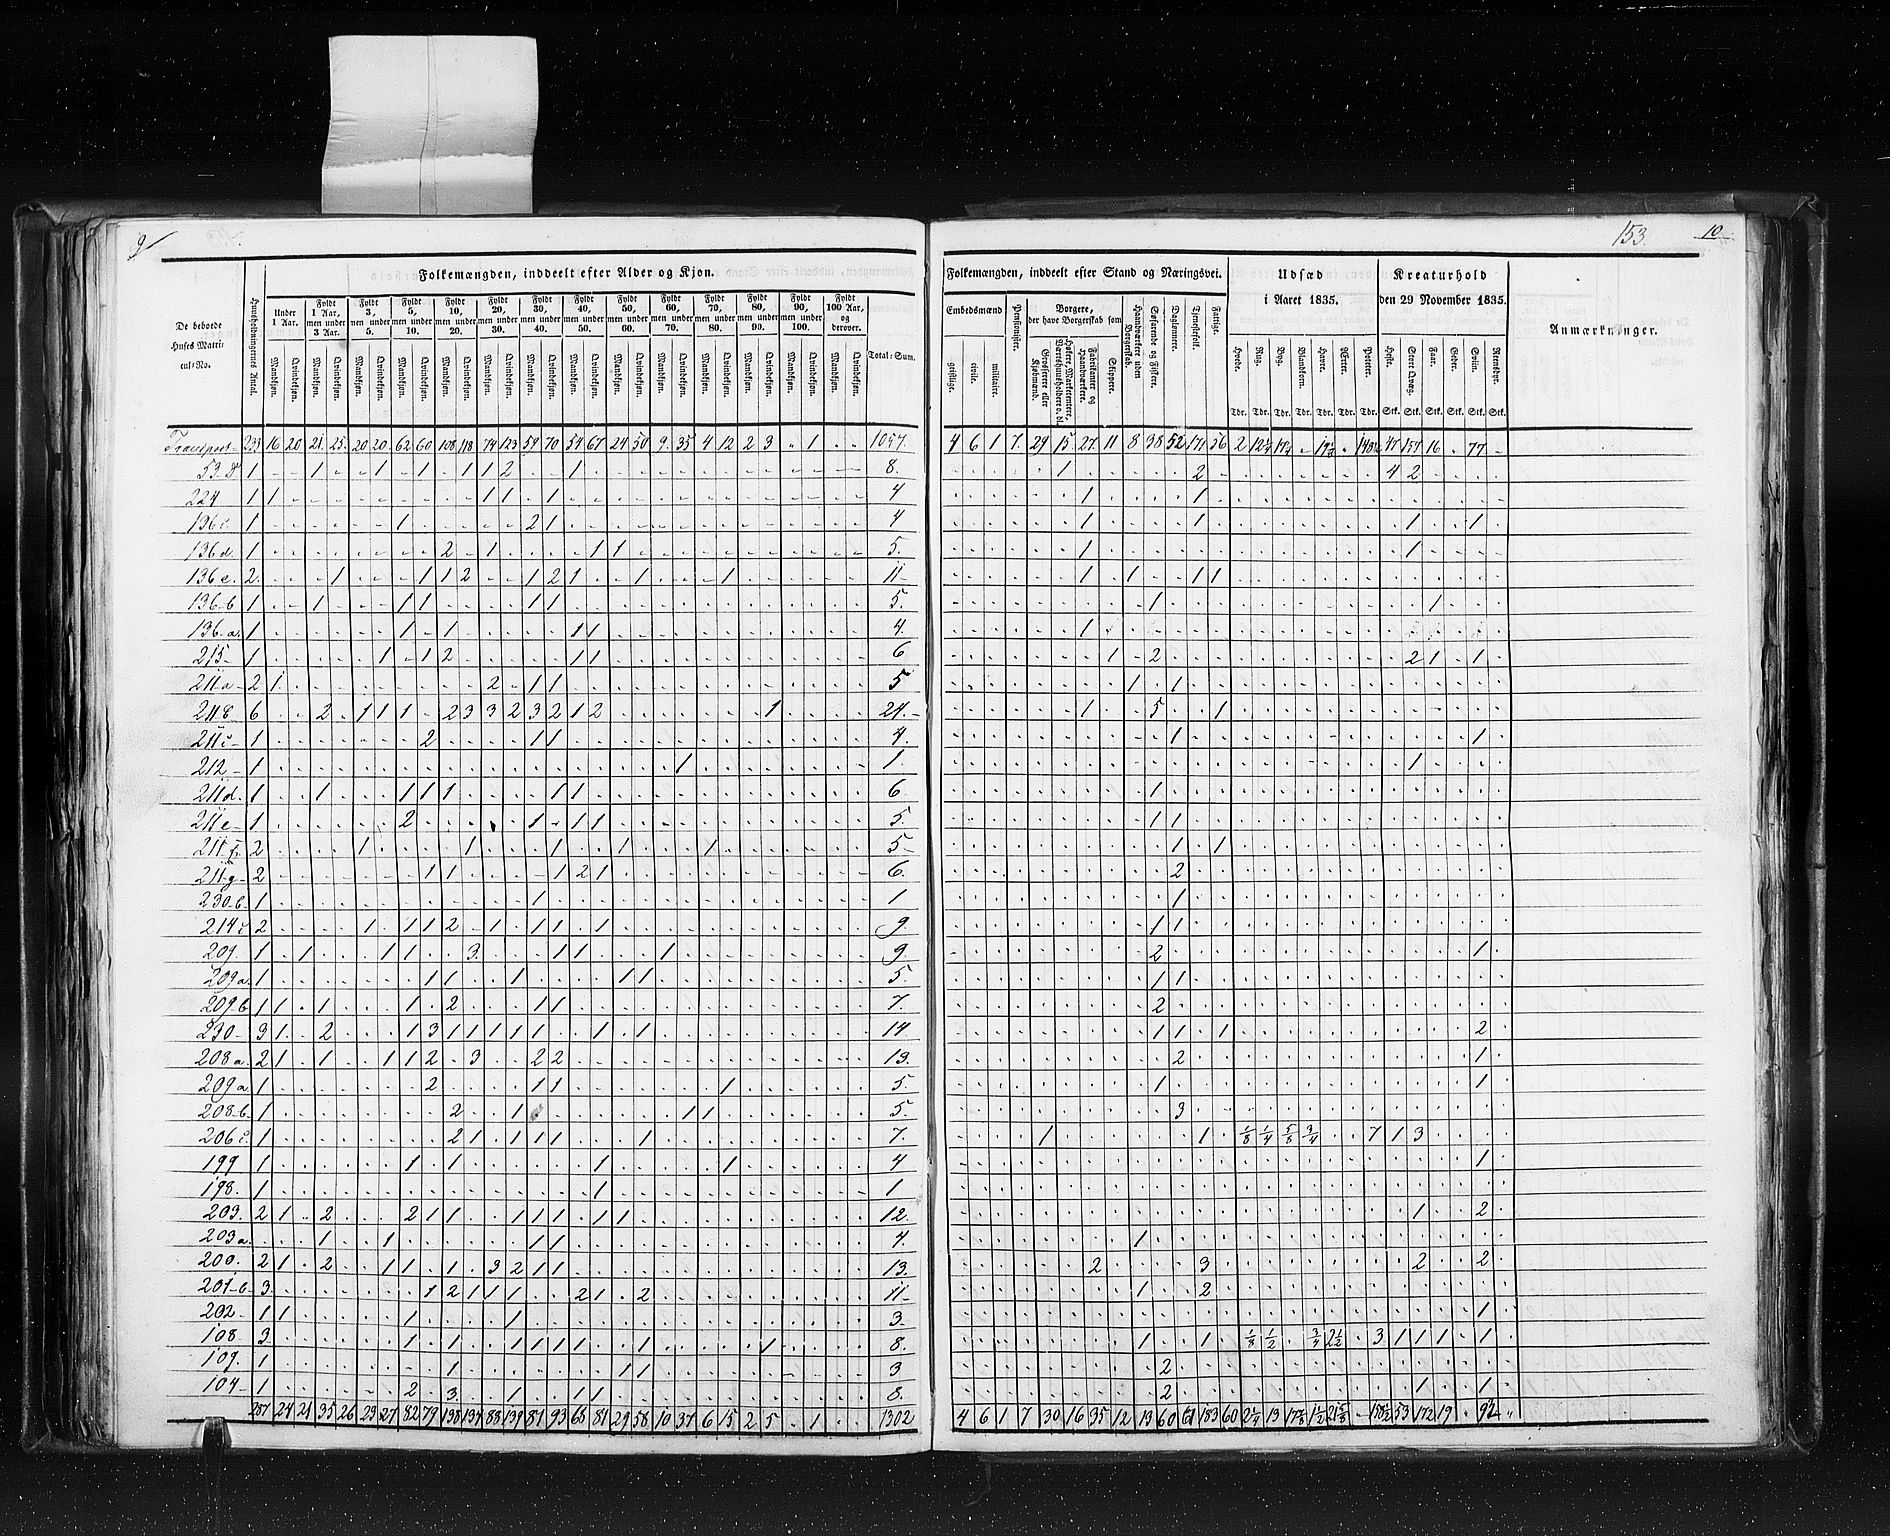 9
153.
10
Folkemængden, inddeelt efter Alder og Kjøn.
Folkemængden, inddeelt efter Stand og Næringsvei.
Udsæd
i Aaret 1835.
Kreaturhold
den 29 November 1835.
Anmærkninger.
De beboede Huses Matricul-No.
Huusholdningernes Antal.
Under 1 Aar.
Fyldt 1 Aar, men under 3 Aar.
Fyldt 3, men under 5.
Fyldt 5, men under 10.
Fyldt 10, men under 20.
Fyldt 20, men under 30.
Fyldt 30, men under 40.
Fyldt 40, men under 50.
Fyldt 50, men under 60.
Fyldt 60, men under 70.
Fyldt 70, men under 80.
Fyldt 80, men under 90.
Fyldt 90, men under 100.
Fyldt 100 Aar, og derover.
Mandkjøn. Qvindekjøn.
Total-Sum.
Embedsmænd
geistlige. civile. militaire.
Pensionister.
Borgere, der have Borgerskab som
Grosserere eller Kjøbmænd.
Fabrikanter og Haandværkere.
Skippere.
Haandværkere uden Borgerskab.
Søfarende og Fiskere.
Daglønnere.
Tjenestefolk.
Fattige.
Hvede. Rug. Byg. Blandkorn. Havre. Ærter. Poteter.
Tdr. Tdr. Tdr. Tdr. Tdr. Tdr. Tdr.
Heste. Stort Qvæg. Faar. Geder. Sviin. Rensdyr.
Stk. Stk. Stk. Stk. Stk. Stk.
Transport 233 16 20 21 25 20 20 62 60 108 118 74 123 59 70 54 67 24 50 9 35 4 12 2 3 1 1057
4 6 1 7 29 15 27 11 8 38 52 171 56 2
224 1 1 1 1 1 4 1 1
136c 1 1 2 1 4 1 1 1 1
136d. 1 2 1 1 1 5. 1 1
136e. 2. 1 1 1 2 1 2 1 1 1 11 1 1 1 1
136-b 1 1 1 1 1 1 5. 1 1
136-a. 1 1 1 1 1 4. 1
215 1 1 1 2 1 1 6 1 2 2 1 1
211-a 2 1 2 1 1 5 1 1
6 2 1 1 1 2 3 3 2 3 2 1 2 1 24. 1 5 1
211c 1 2 1 1 4. 1 1
212 1 1 1. 1
211d. 1 1 1 1 1 1 1 6 1
211e 1 2 1 1 1 5. 1 1
211f. 2 1 1 1 1 1 5 1 1
211g 2 1 1 1 2 1 6. 2
230-b 1 1 1 1
214c 2 1 1 1 2 1 1 1 1 9 1 1
209. 1 1 1 1 3. 1 1 1 9. 2 1
209a. 1 1 1 1 1 1 5. 1 1
209-b 1 1 1 1 2 1 1 7. 2
230 3 1 2 1 3 1 1 1 1 1 1 1 14 1 1 1 2
208a. 2 1 1 1 1 2 3 2 2 13. 2 1
209a 1 2 1 1 1 5. 1 1
208-b. 1 2 1 1 1 5. 3
206c. 1 2 1 1 1 1 1 7. 1 1 1/8 1/4 5/8 3/4 7 1 3
199 1 1 1 1 1 4 1
198. 1 1 1
203. 2 1 2 2 1 1 1 1 1 1 1 12. 1 2
203a. 1 1 1 1 1 4. 1
200. 2 1 2 1 1 1 3 2 1 1 13. 2 3 2 2
201-b 3 1 2 1 1 1 2 1 2 11 1 2
202 1 1 1 1 3. 1
108. 3 1 1 1 1 1 1 1 1 8. 1 1 1/8 1/2 3/4 2 1/2 3 1 1 1 1
109. 1 1 1 1 3 2
104 1 2 3 1 1 1 8. 2 1 1
287 24 21 35 26 23 27 82 79 138 134 88 139 81 93 65 81 29 58 10 37 6 15 2 5 1 1302
4 6 1 7 30 16 35 12 13 60 61 183 60 53 172 19 92